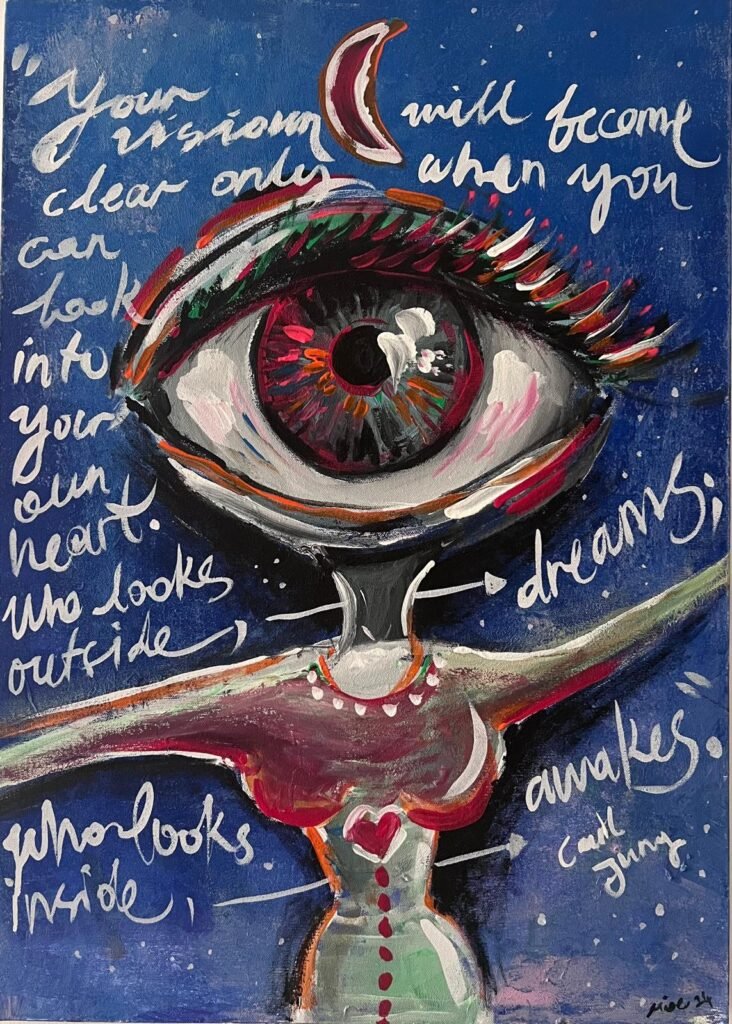 "Your vision will become
clear only when you
can
look
into
your
own
heart.
Who looks
outside, → dreams;
who looks
inside, → awakes".
Carl
Jung